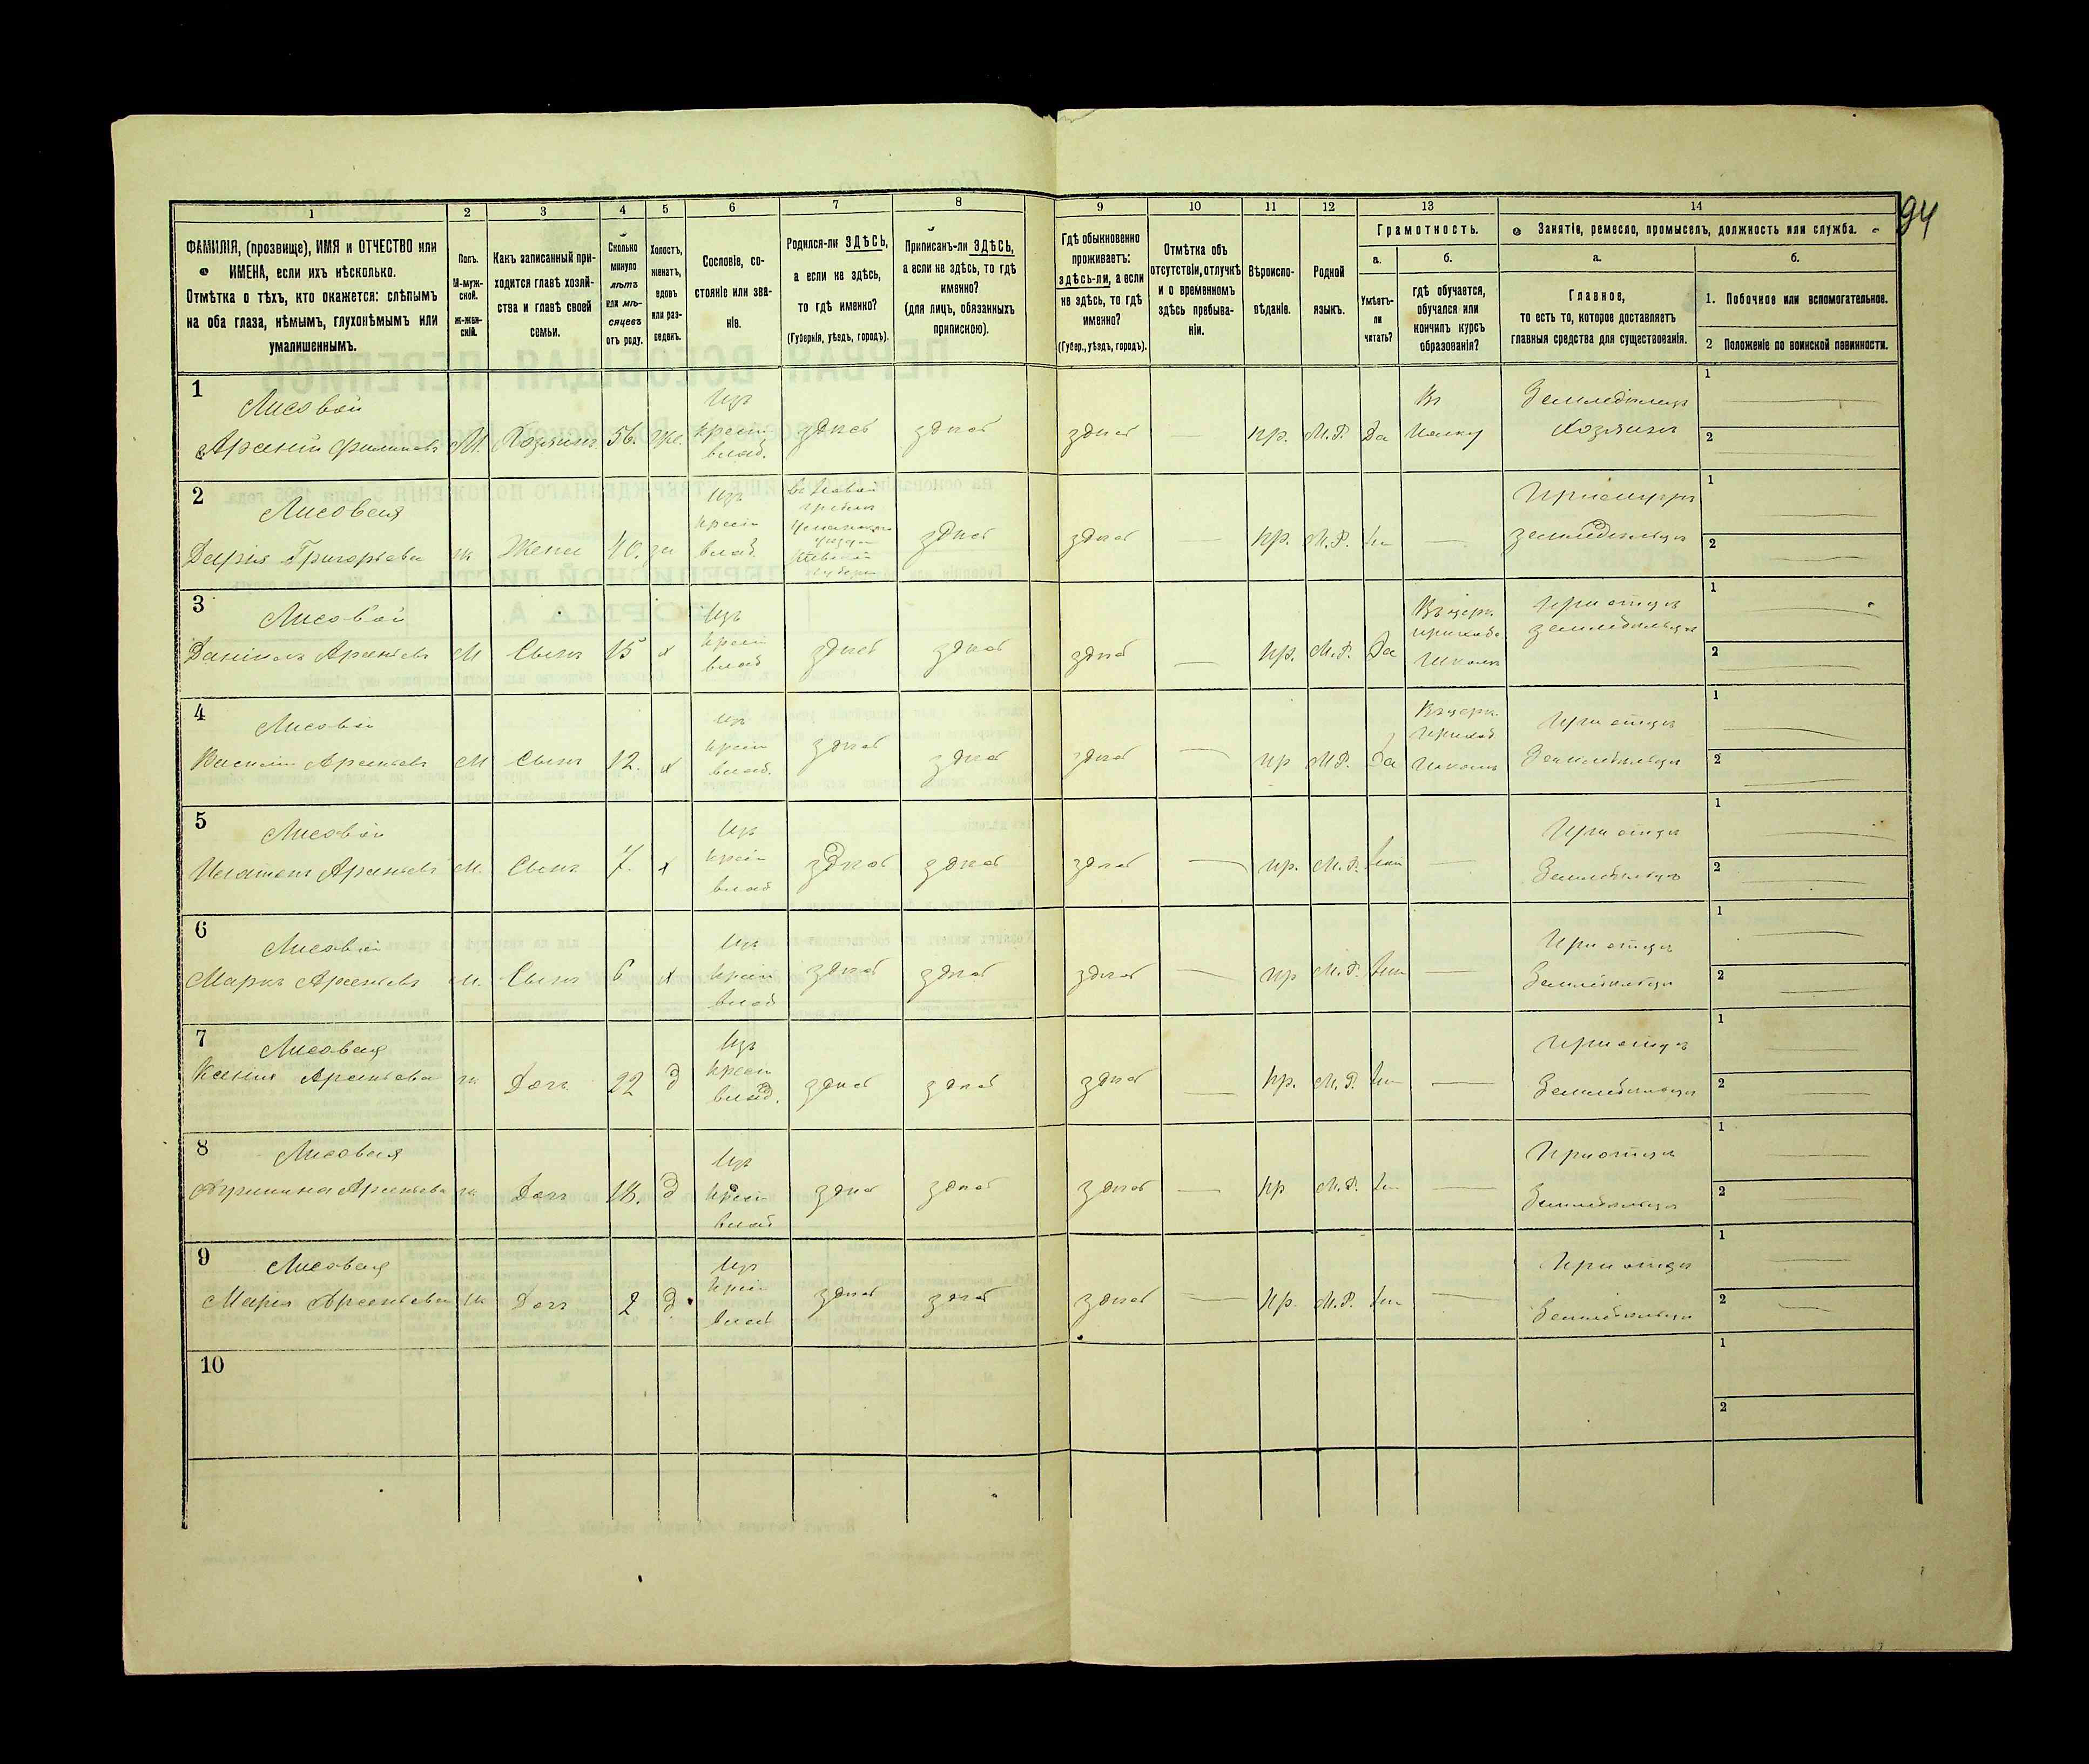 94
1
2
3
4
5
6
7
8
9
10
11
12
13
14
ФАМИЛІЯ, (прозвище), ИМЯ и ОТЧЕСТВО или
ИМЕНА, если ихъ нѣсколько.
Отмѣтка о тѣхъ, кто окажется: слѣпымъ
на оба глаза, нѣмымъ, глухонѣмымъ или
умалишеннымъ.
Полъ.
М-муж-
ской.
Ж-жен-
скій.
Какъ записанный при-
ходится главѣ хозяй-
ства и главѣ своей
семьи.
Сколько
минуло
лѣтъ
или мѣ-
сяцевъ
отъ роду.
Холостъ,
женатъ,
вдовъ
или раз-
веденъ.
Сословіе, со-
стояніе или зва-
ніе.
Родился-ли ЗДѢСЬ,
а если не здѣсь,
то гдѣ именно?
(Губернія, уѣздъ, городъ).
Приписанъ-ли ЗДѢСЬ,
а если не здѣсь, то гдѣ
именно?
(для лицъ, обязанныхъ
припискою).
Гдѣ обыкновенно
проживаетъ:
здѣсь-ли, а если
не здѣсь, то гдѣ
именно?
(Губер., уѣздъ, городъ).
Отмѣтка объ
отсутствіи, отлучкѣ
и о временномъ
здѣсь пребыва-
ніи.
Вѣроиспо-
вѣданіе.
Родной
языкъ.
Грамотность.
а.
Умѣетъ-
ли
читать?
б.
гдѣ обучается,
обучался или
кончилъ курсъ
образованія?
Занятіе, ремесло, промыселъ, должность или служба.
а.
Главное,
то есть то, которое доставляетъ
главныя средства для существованія.
б.
1. Побочное или вспомогательное.
2 Положеніе по воинской повинности.
1
Лисовой
Арсеній Филиповъ
М.
Хозяинъ
56.
же.
Изъ
крест
влад.
здѣсь
здѣсь
здѣсь
пр.
М.Р.
Да
Земледѣлецъ
Хозяинъ
1
2
2
Лисовая
Дарія Григорьева
ж
Жена
40.
Изъ
крест
влад.
здѣсь
здѣсь
пр.
М.Р.
земледѣльцѣ
1
2
3
Лисовой
Даніилъ Арсеньевъ
М
Сынъ
15
х
Изъ
крест
влад
здѣсь
здѣсь
здѣсь
пр.
М.Р.
Да
Въ церк.
приход
школѣ
При отцѣ
земледѣльцѣ
1
2
4
Лисовой
Арсеньевъ
М
Сынъ
12.
х
Изъ
крест
влад.
здѣсь
здѣсь
здѣсь
пр
М.Р.
Да
Въ церк.
приход
школѣ
При отцѣ
Земледѣльцѣ
1
2
5
Лисовой
Арсеньевъ
М.
Сынъ
7.
х
Изъ
крест
влад
здѣсь
здѣсь
здѣсь
пр.
М.Р.
При отцѣ
Земледѣльцѣ
1
2
6
Лисовой
Маркъ Арсеньевъ
М.
Сынъ
6
х
Изъ
крест
влад
здѣсь
здѣсь
здѣсь
пр
М.Р.
При отцѣ
Земледѣльцѣ
1
2
7
Лисовая
Ксенія Арсеньева
ж
Дочь
22
д
Изъ
крест
влад.
здѣсь
здѣсь
здѣсь
пр.
М.Р.
При отцѣ
Земледѣльцѣ
1
2
8
Лисовая
Арсеньева
ж
Дочь
18.
д
Изъ
крест
влад
здѣсь
здѣсь
здѣсь
пр
М.Р.
При отцѣ
Земледѣльцѣ
1
2
9
Лисовая
Марія Арсеньева
ж
Дочь
2
д
Изъ
крест
влад
здѣсь
здѣсь
здѣсь
пр.
М.Р.
При отцѣ
Земледѣльцѣ
1
2
10
1
2